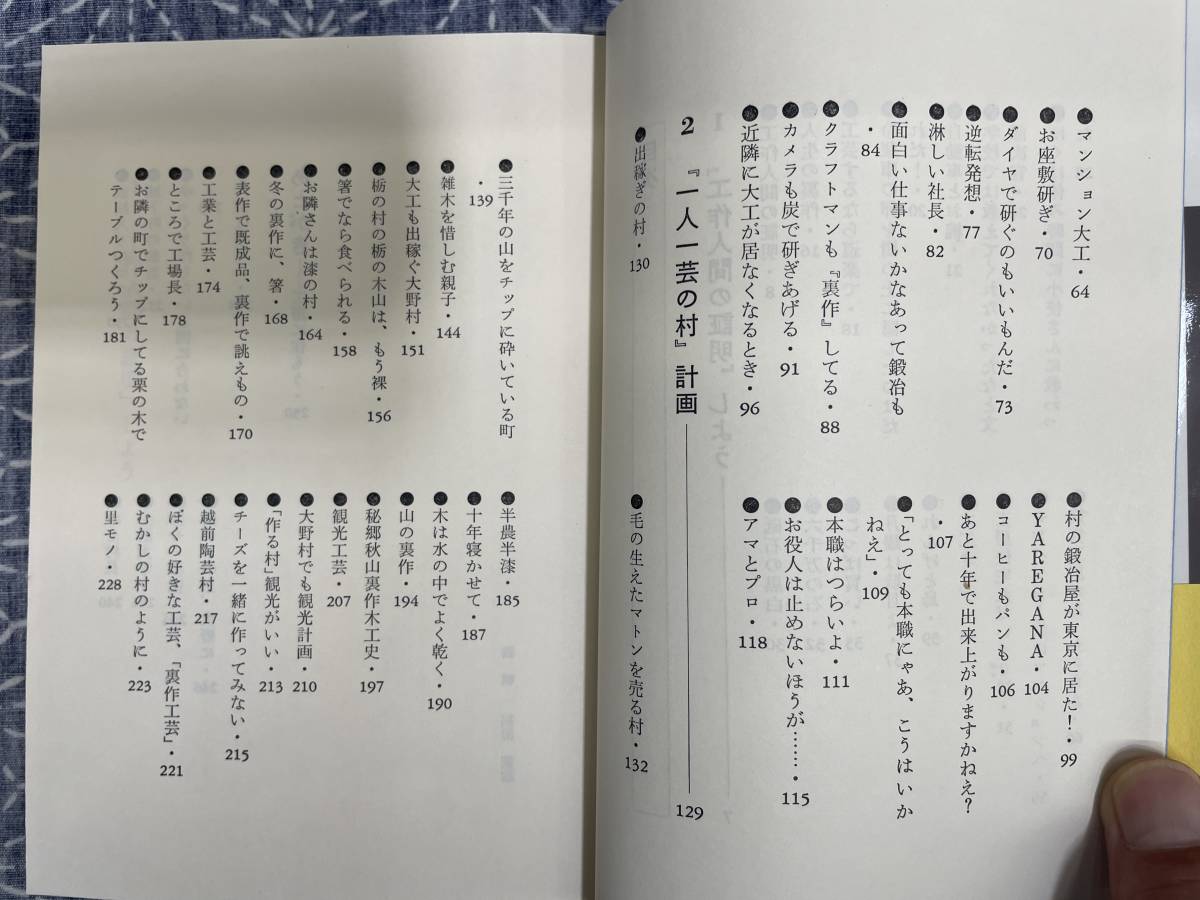 ●マンション大工・64
●お座敷研ぎ・70
●ダイヤで研ぐのもいいもんだ・73
●逆転発想・77
●淋しい社長・82
●面白い仕事ないかなあって鍛冶も
・84
●クラフトマンも『裏作』してる・88
●カメラも炭で研ぎあげる・91
●近隣に大工が居なくなるとき・96
●村の鍛冶屋が東京に居た!・99
●YAREGANA・104
●コーヒーもパンも・106
●あと十年で出来上がりますかねえ?
・107
●「とっても本職にゃあ、こうはいか
ねえ」・109
●本職はつらいよ・111
●お役人は止めないほうが……・115
●アマとプロ・118
2 『一人一芸の村』計画 129
●出稼ぎの村・130
●毛の生えたマトンを売る村・132
●三千年の山をチップに砕いている町
・139
●雑木を惜しむ親子・144
●大工も出稼ぐ大野村・151
●栃の村の栃の木山は、もう裸・156
●箸でなら食べられる・158
●お隣さんは漆の村・164
●冬の裏作に、箸・168
●表作で既成品、裏作で誂えもの・170
●工業と工芸・174
●ところで工場長・178
●お隣の町でチップにしてる栗の木で
テーブルつくろう・181
●半農半漆・185
●十年寝かせて・187
●木は水の中でよく乾く・190
●山の裏作・194
●秘郷秋山裏作木工史・197
●観光工芸・207
●大野村でも観光計画・210
●「作る村」観光がいい・213
●チーズを一緒に作ってみない・215
●越前陶芸村・217
●ぼくの好きな工芸、「裏作工芸」・221
●むかしの村のように・223
●里モノ・228